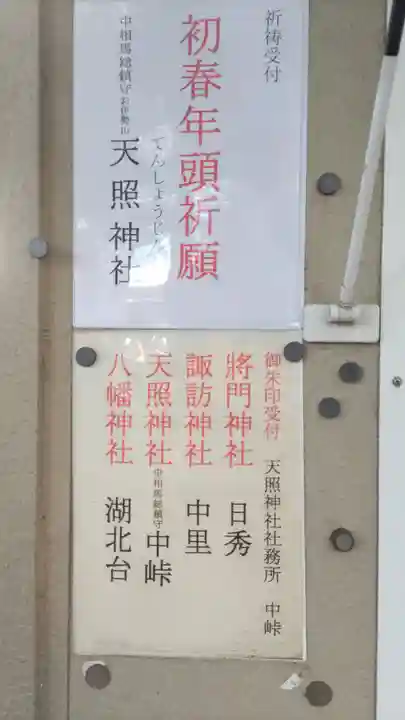 祈祷受付
初春年頭祈願
てんしょうじん
中相馬総鎮守 お伊勢山 天照神社
御朱印受付 天照神社社務所 中峠
將門神社 日秀
諏訪神社 中里
天照神社 中相馬総鎮守 中峠
八幡神社 湖北台